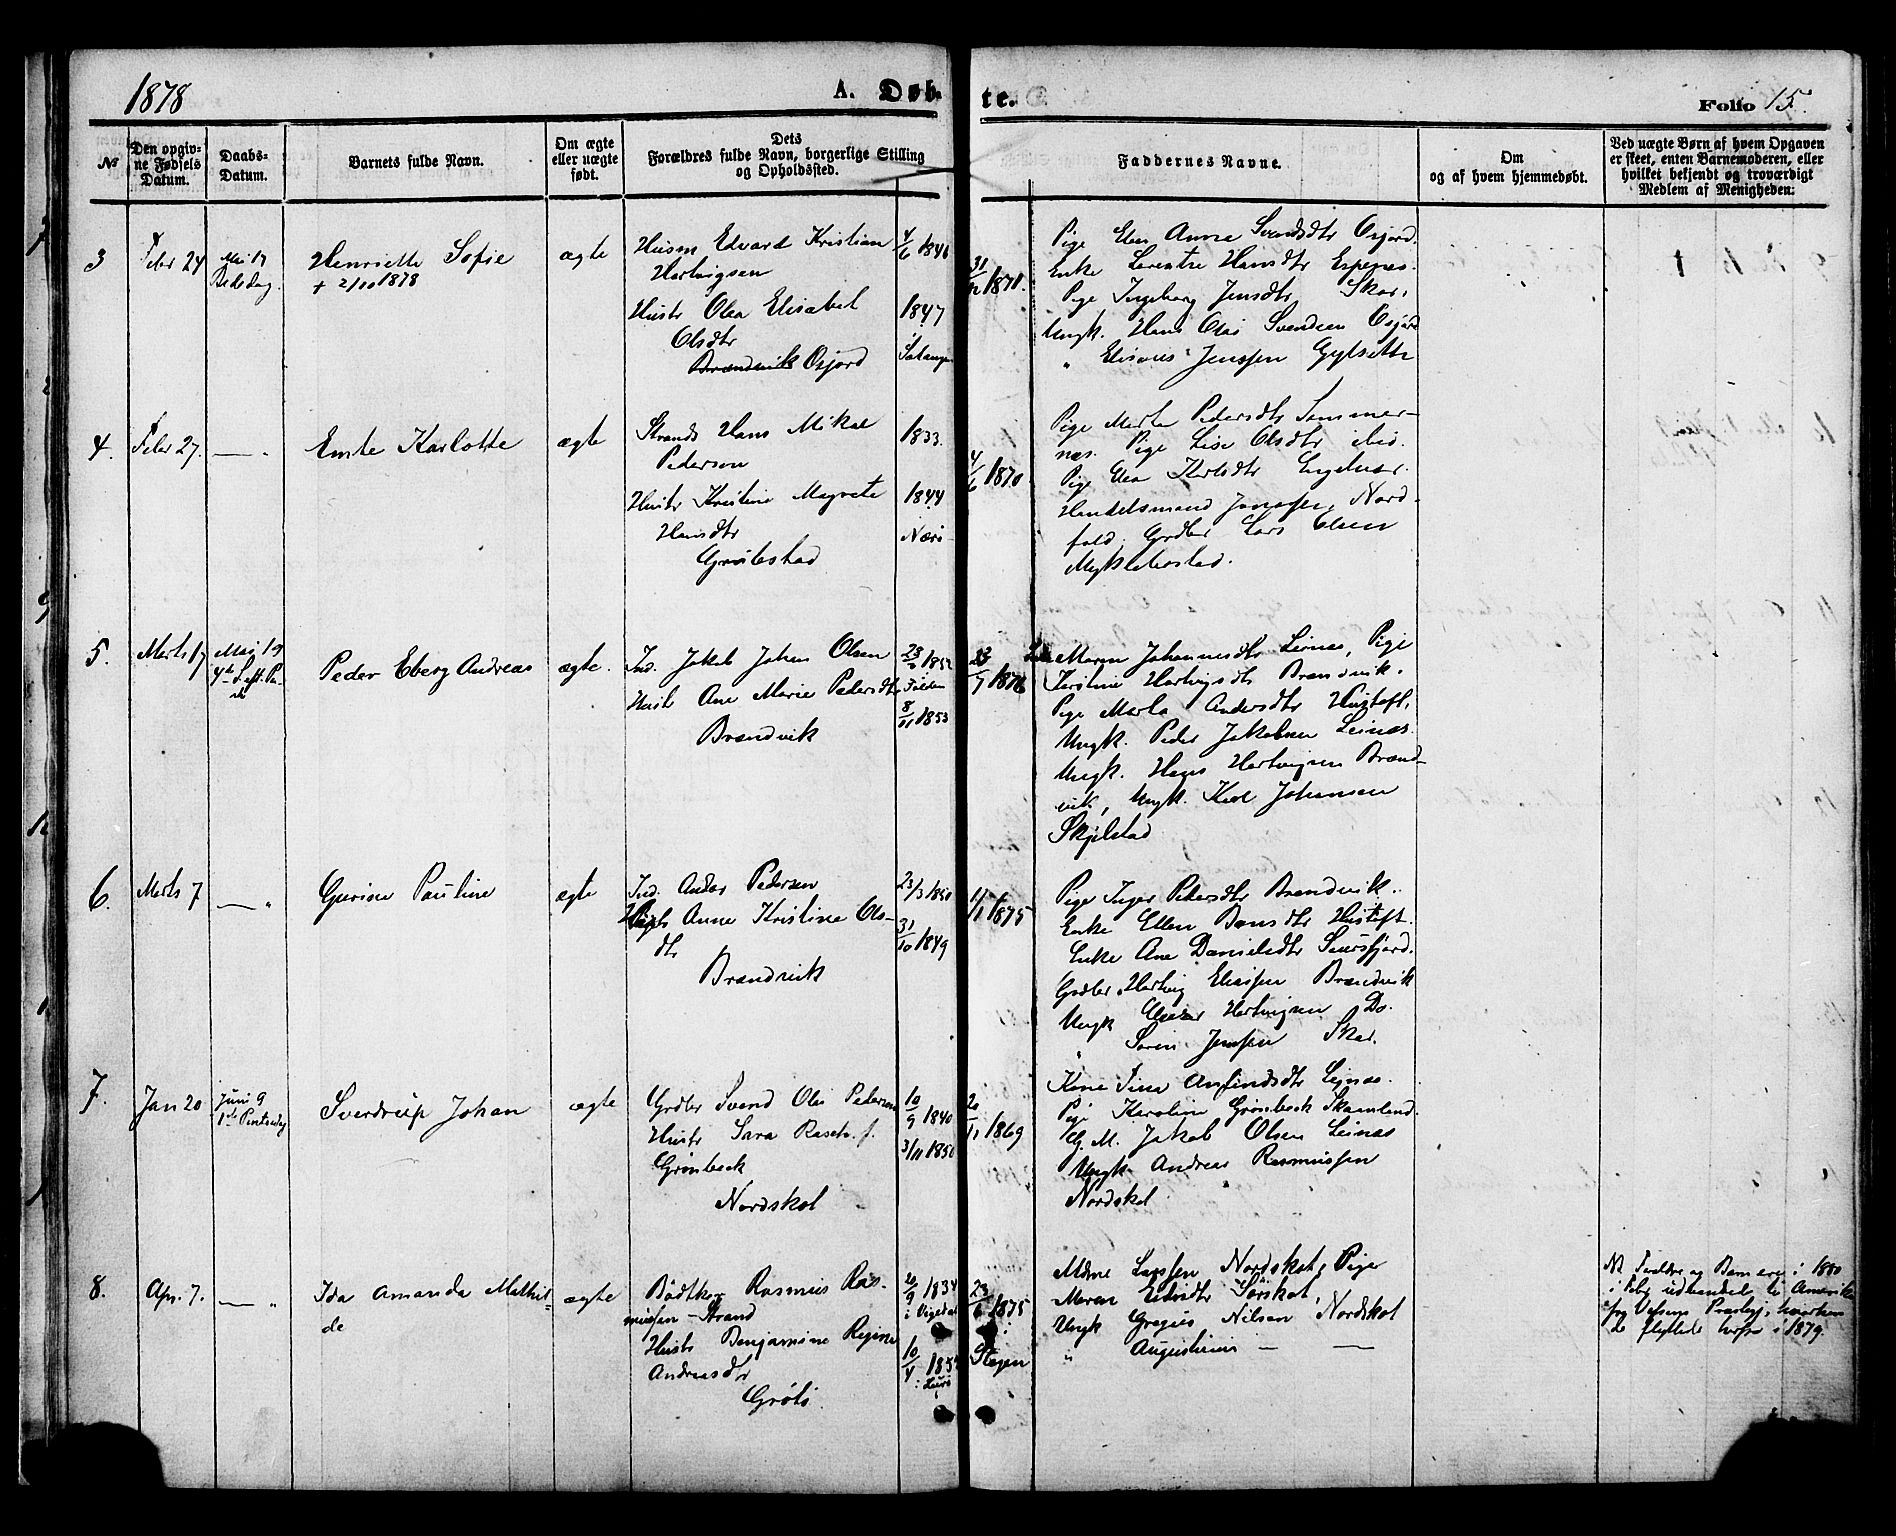 1878
A. Døb-
te.
Folio 15.
No
Den opgiv-
ne Fødsels
Datum.
Daabs-
Datum.
Barnets fulde Navn.
Om ægte
eller uægte
født.
Dets
Forældres fulde Navn, borgerlige Stilling
og Opholdssted.
Faddernes Navne.
Om
og af hvem hjemmedøbt.
Ved uægte Børn af hvem Opgaven
er skeet, enten Barnemoderen, eller
hvilket bekjendt og troværdigt
Medlem af Menigheden:
3
Febr 24
Mai 17
Bededag.
Henriette Sofie
+ 2/10 1878
ægte
Husm Edvard Kristian
Hartvigsen
Hustr Olea Elisabet
Olsdtr
Brændvik Osjord
4/6 1846
1847
Salangen
31/12 1871.
Pige Elen Anna Svendsdtr Osjord.
Enke Lorentze Hansdtr Espenes.
Pige Ingeborg Jensdtr Skar,
Ungk. Hans Olai Svendsen Osjord
" Elisæus Jenssen Gyltsette
4.
Febr 27.
Emte Karlotte
ægte
Strands Hans Mikal
Pederson
Hustr Kristine Magrete
Hansdtr
Grøtestad
1833.
1844
Nærö
4/6 1870
Pige Marta Pedersdtr Sommer-
nes. Pige Lise Olsdtr ibid.
Pige Elea Karlsdtr Engelvær.
Handelsmand Jonassen, Nord-
fold. Grdbr Lars Olsen
Myklebostad.
5.
Marts 17
Mai 19
4de S. eft. Paa-
ske
Peder Eberg Andreas
ægte.
Ind. Jakob Johan Olsen
Hust Ane Marie Pedersdtr
Brændvik
1852
Folden
8/11 1853
1876
Maren Johannesdtr Leines, Pige
Kirstine Hartvigsdtr Brændvik.
Pige Marta Andersdtr Hustoft,
Ungk. Peder Jakobsen Leines.
Ungk. Hans Hartvigsen Brænd-
vik, Ungk. Karl Johansen
Skjelstad
6.
Marts 7
Gurine Pauline
ægte
Ind. Andor Pedersen
Anne Kristine Ols-
dtr
Brændvik
23/3 1850
31/10 1849
1875
Pige Inger Pedersdtr Brændvik.
Enke Ellen Bonsdtr Hustoft.
Enke Ane Danielsdtr Saursfjord.
Grdbr. Hartvig Eliassen Brændvik
Ungk Hartvigsen Do.
" Søren Jenssen Skar.
7.
Jan 20
Juni 9
1ste Pintsedag
Sverdrup Johan
ægte
Grdbr Svend Olai Pedersen
Hustr Sara f.
Grönbeck
Nordskot
10/9 1840
3/11 1850
1869
Kone Sina Anfindsdtr Leines.
Pige Karoline Grønbeck Skamland.
G. M. Jakob Olsen Leines
Ungk Andreas Rasmussen
Nordskot
8.
Apr. 7.
Ida Amanda Mathil-
de
ægte
Bødtker Rasmus Ras-
mussen Strand
Hustr Benjamine Regine
Andreasdtr
Grøtö.
20/9 1834
10/4
: Lurö
23/6 1875
: Stegen
Mdme Larssen Nordskot, Pige
Maren Eidisdtr Sörskot,
Ungk Gregus Nilsen, Nordskot
" Augustinius — —
NB Forældre og Barn ere i 1880
i Febr udvandret til Amerika
fra Vefsens Præstegj, hvorhen
de flyttede herfra i 1879.